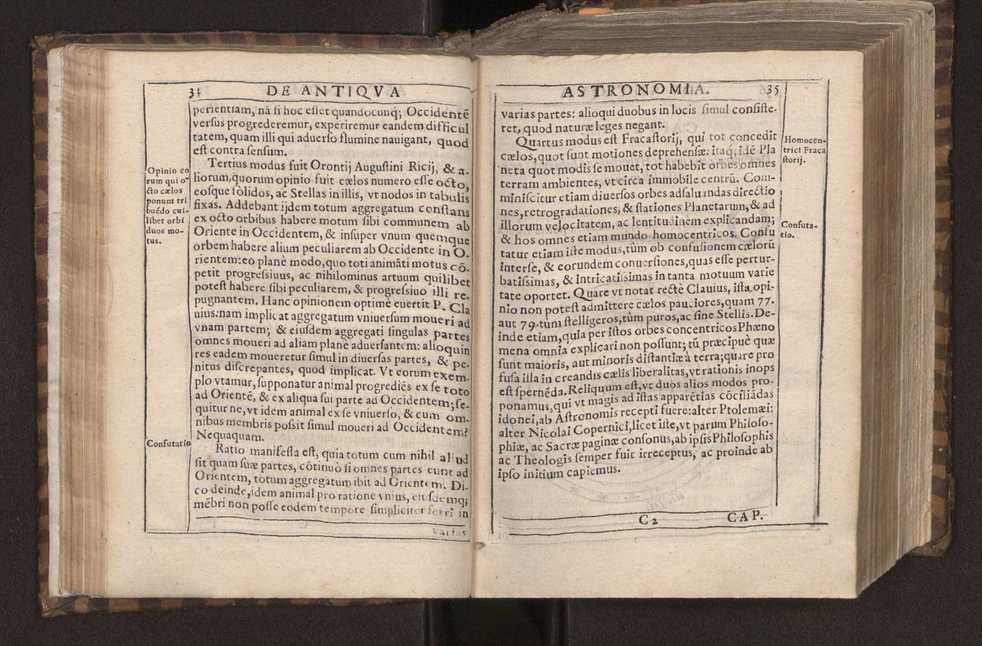 34 DE ANTIQVA
perientiam, nā si hoc esset quandocunq; Occidentē
versus progrederemur, experiremur eandem difficul
tatem, quam illi qui aduerso flumine nauigant, quod
est contra sensum.
Tertius modus fuit Orontij Augustini Ricij, & a-
liorum, quorum opinio fuit cælos numero esse octo,
eosque solidos, ac Stellas in illis, vt nodos in tabulis
fixas. Addebant ijdem totum aggregatum constans
ex octo orbibus habere motum sibi communem ab
Oriente in Occidentem, & insuper vnum quemque
orbem habere alium peculiarem ab Occidente in O-
rientem: eo planè modo, quo toti animāti motus cō-
petit progressiuus, ac nihilominus artuum quilibet
potest habere sibi peculiarem, & progressiuo illi re-
pugnantem. Hanc opinionem optimè euertit P. Cla
uius: nam implicat aggregatum vniuersum moueri ad
vnam partem; & eiusdem aggregati singulas partes
omnes moueri ad aliam planè aduersantem: alioquin
res eadem moueretur simul in diuersas partes, & pe-
nitus discrepantes, quod implicat. Vt eorum exem-
plo vtamur, supponatur animal progrediēs ex se toto
ad Orientē, & ex aliqua sui parte ad Occidentem; se-
quitur ne, vt idem animal ex se vniuerso, & cum om-
nibus membris possit simul moueri ad Occidentem?
Nequaquam.
Ratio manifesta est, quia totum cum nihil aliud
sit quam suæ partes, cōtinuò si omnes partes eunt ad
Orientem, totum aggregatum ibit ad Orientem. Di-
co deinde, idem animal pro ratione vnius, eiusdemq;
mēbri non posse eodem tempore simpliciter ferri in
varias
Opinio eo
rum qui o-
cto cælos
ponunt tri
buēdo cui-
libet orbi
duos mo-
tus.
Confutatio
ASTRONOMIA. 35
varias partes: alioqui duobus in locis simul consiste-
ret, quod naturæ leges negant.
Quartus modus est Fracastorij, qui tot concedit
cælos, quot sunt motiones deprehensæ: itaq; idē Pla
neta quot modis se mouet, tot habebit orbes omnes
terram ambientes, vt circa immobile centrū. Com-
miniscitur etiam diuersos orbes ad saluandas directio
nes, retrogradationes, & stationes Planetarum, & ad
illorum velocitatem, ac lentitudinem explicandam;
& hos omnes etiam mundo homocentricos. Confu
tatur etiam iste modus, tùm ob confusionem cælorū
interse, & eorundem conuersiones, quas esse pertur-
batissimas, & intricatissimas in tanta motuum varie
tate oportet. Quare vt notat rectè Clauius, ista opi-
nio non potest admittere cælos pauciores, quam 77.
aut 79. tùm stelligeros, tùm puros, ac sine Stellis. De-
inde etiam, quia per istos orbes concentricos Phæno
mena omnia explicari non possunt; tū præcipuè quæ
sunt maioris, aut minoris distantiæ à terra; quare pro
fusa illa in creandis cælis liberalitas, vt rationis inops
est spernēda. Reliquum est, vt duos alios modos pro-
ponamus, qui vt magis ad istas apparētias cōciliādas
idonei, ab Astronomis recepti fuere: alter Ptolemæi:
alter Nicolai Copernici, licet iste, vt parum Philoso-
phiæ, ac Sacræ paginæ consonus, ab ipsis Philosophis
ac Theologis semper fuit irreceptus, ac proinde ab
ipso initium capiemus.
C2 CAP.
Homocen-
trici Fraca
storij.
Confuta-
tio.